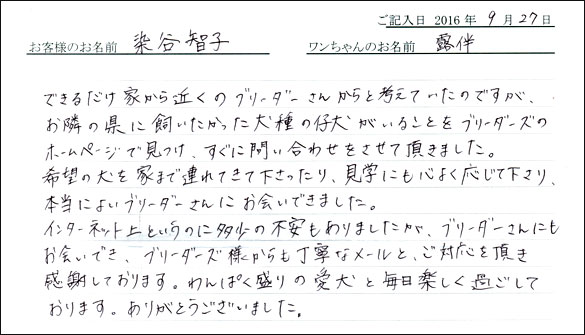 ご記入日 2016年 9月27日
お客様のお名前 染谷智子 ワンちゃんのお名前 露伴
できるだけ家から近くのブリーダーさんからと考えていたのですが、
お隣の県に飼いたかった犬種の仔犬がいることをブリーダーズの
ホームページで見つけ、すぐに問い合わせをさせて頂きました。
希望の犬を家まで連れてきて下さったり、見学にも心よく応じて下さり、
本当によいブリーダーさんにお会いできました。
インターネット上というのに多少の不安もありましたが、ブリーダーさんにも
お会いでき、ブリーダーズ様からも丁寧なメールと、ご対応を頂き
感謝しております。わんぱく盛りの愛犬と毎日楽しく過ごして
おります。ありがとうございました。